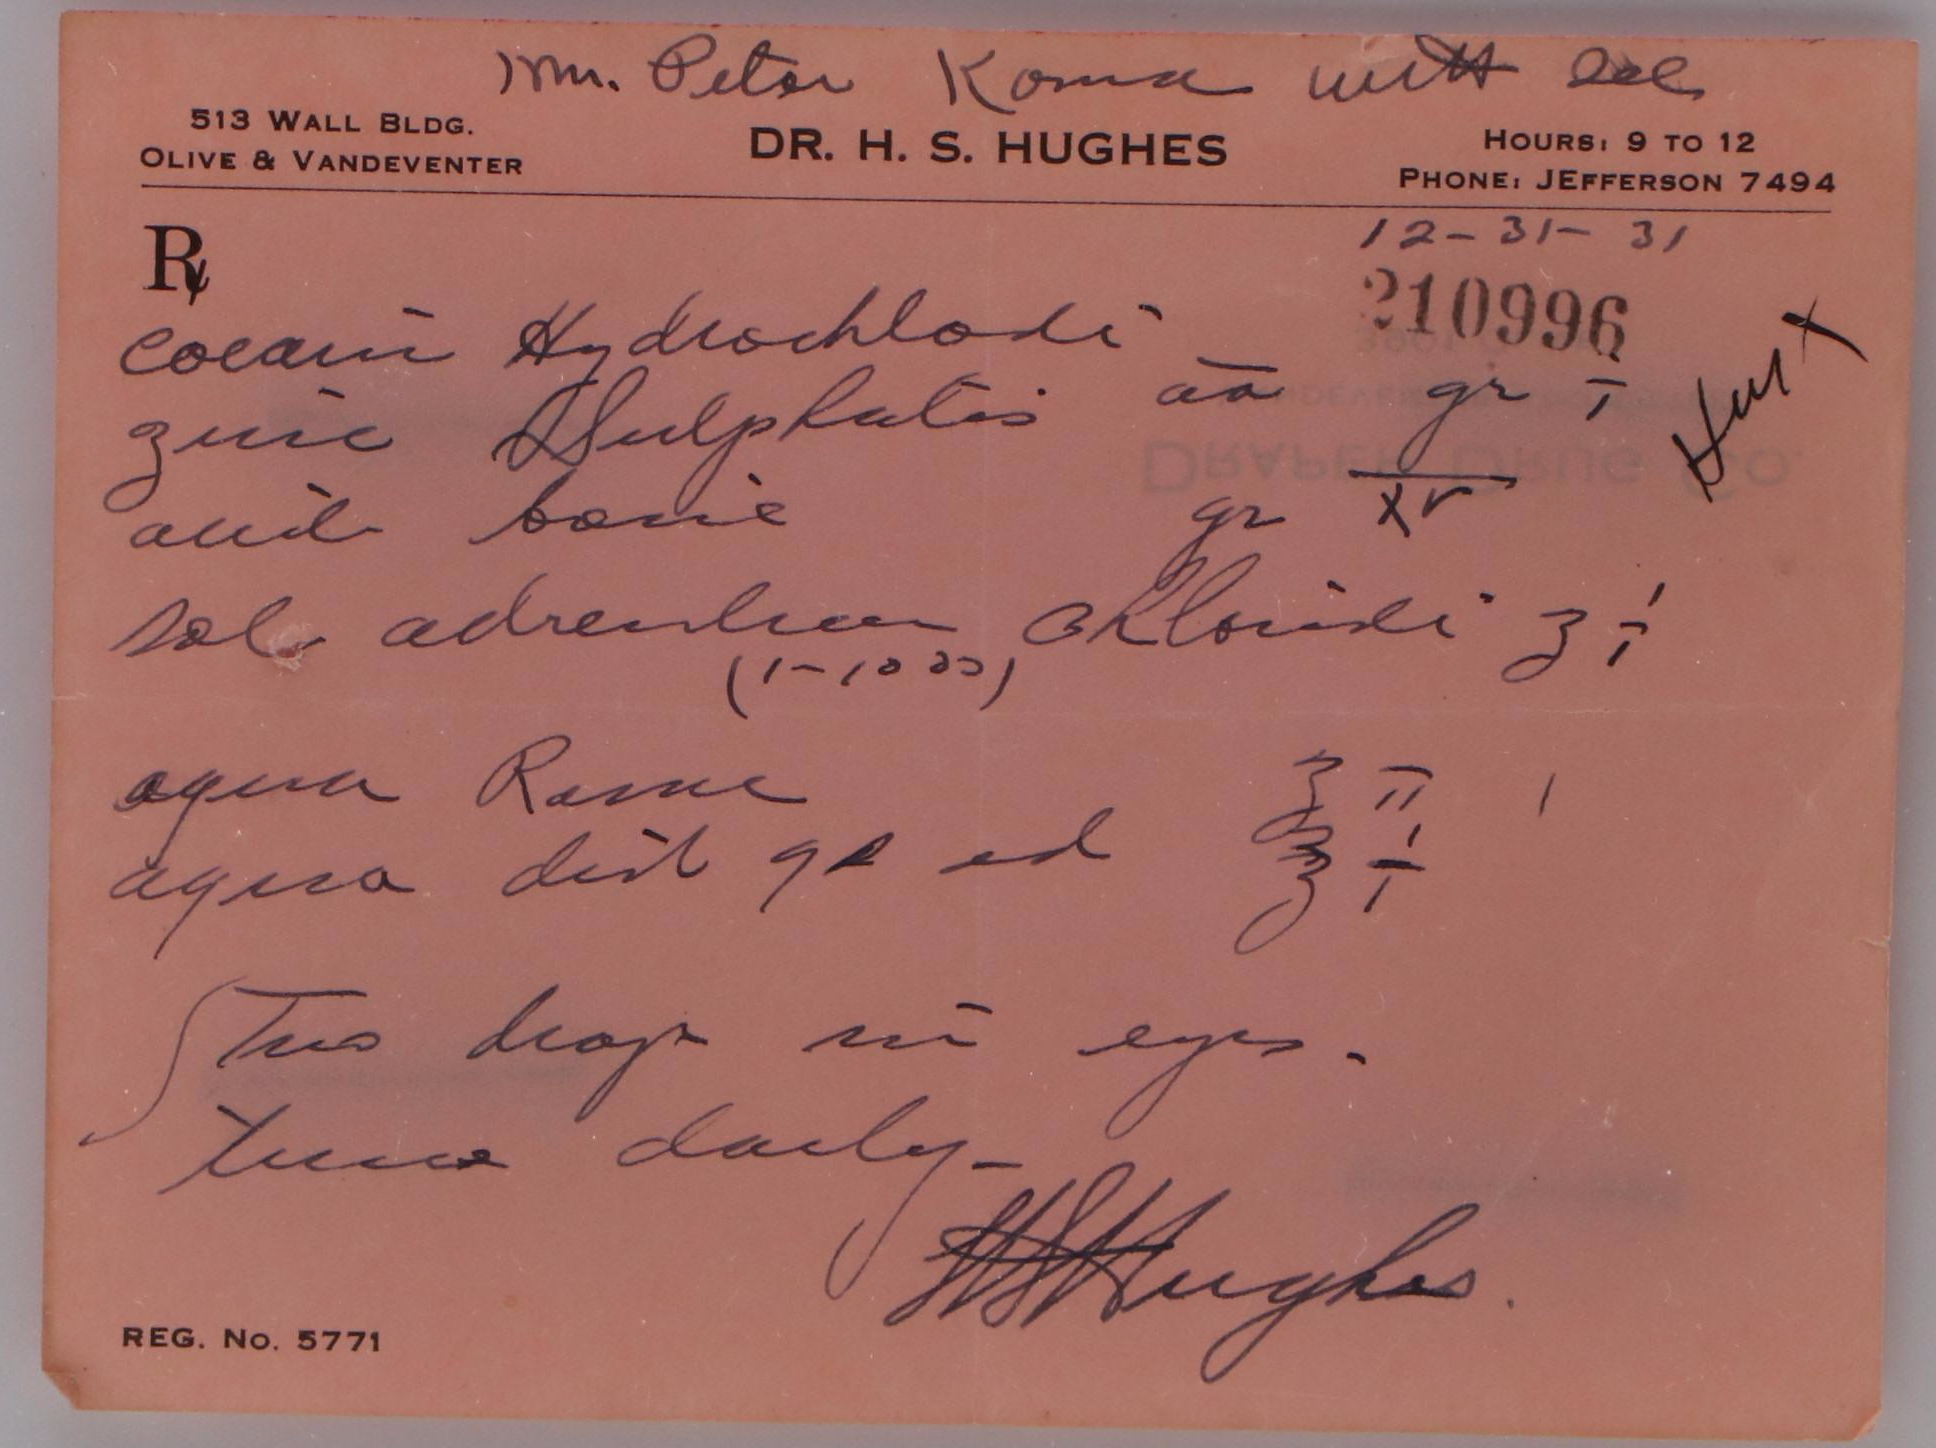 Mr. Peter Koma will call
513 WALL BLDG.
OLIVE & VANDEVENTER
DR. H. S. HUGHES
HOURS: 9 TO 12
PHONE: JEFFERSON 7494
12-31-31
℞
210996
cocain Hydrochlodi
zinc Sulphatis aa gr i
acid boric gr xv
sol adrenlin chloridi ʒ i
(1-1000)
aqua Rosae ʒ ii
aqua dist qs ad ℥ i
DRAPER DRUG CO.
Two drops in eyes.
twice daily-
HS Hughes.
REG. NO. 5771